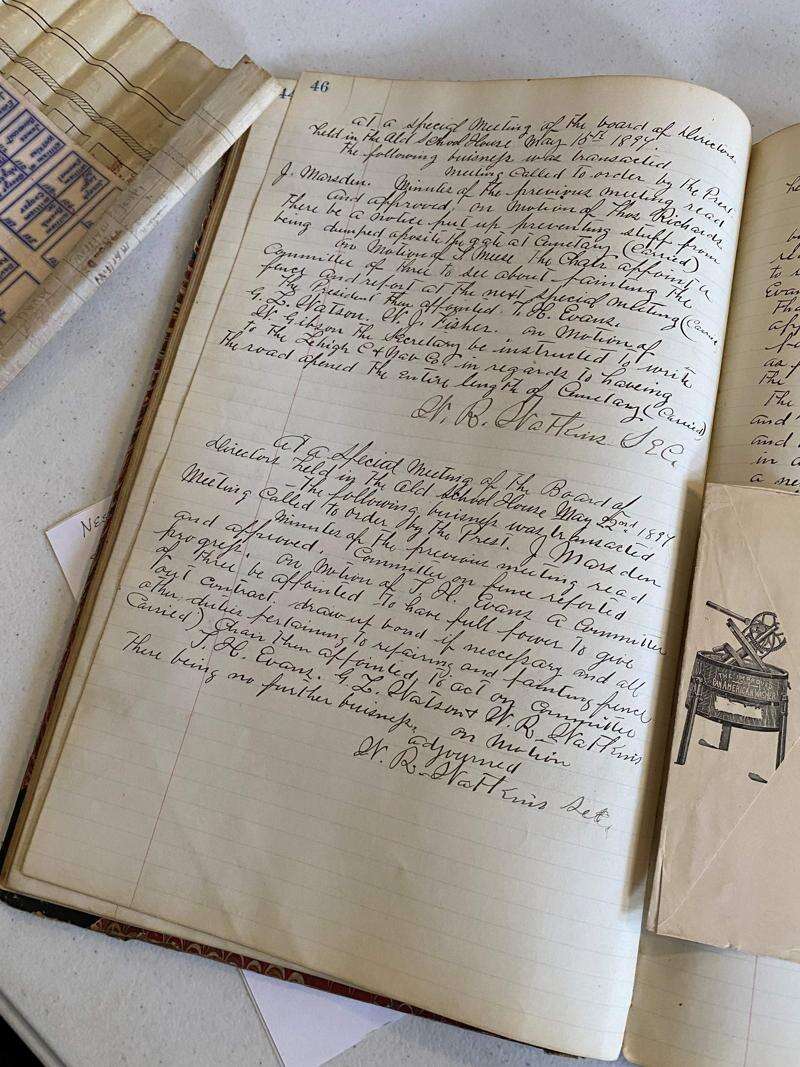 46
44
At a special Meeting of the board of Directors
held in the Old School House May 15th 1897
The following buisness was transacted
Meeting Called to order by the Prest
J. Marsden. Minutes of the previous meeting read
and approved, on motion of Thos Richards
There be a notice put up preventing stuff from
being dumped at Cemetary (Carried)
on Motion of The Chair appoint a
Committee of three to see about painting the
fence and report at the next special meeting (Carrie
The President then appointed T. H. Evans.
G. L. Watson. W. J. Fisher. on Motion of
W. Gibson The Secretary be instructed to write
to the Lehigh C & Nav Co. in regards to haveing
The road opened the entire length of Cemetary (Carried)
W. R. Watkins Sec.
At a Special Meeting of the Board of
Directors held in the Old School House May 22nd 1897
The following buisness was transacted
Meeting Called to order by the Prest. J Marsden
Minutes of the previous meeting read
and approved. Committee on fence reported
progress. on Motion of T. H. Evans a Committee
of three be appointed to have full power to give
out contract, draw up bond if necessary and all
other duties pertaining to repairing and painting fence
Carried) Chair then appointed, to act on Committee
T. H. Evans. G. L. Watson & W. R. Watkins
There being no further buisness, on motion
adjourned
W. R. Watkins Sec.
THE IMPROVED
PAN AMERICAN